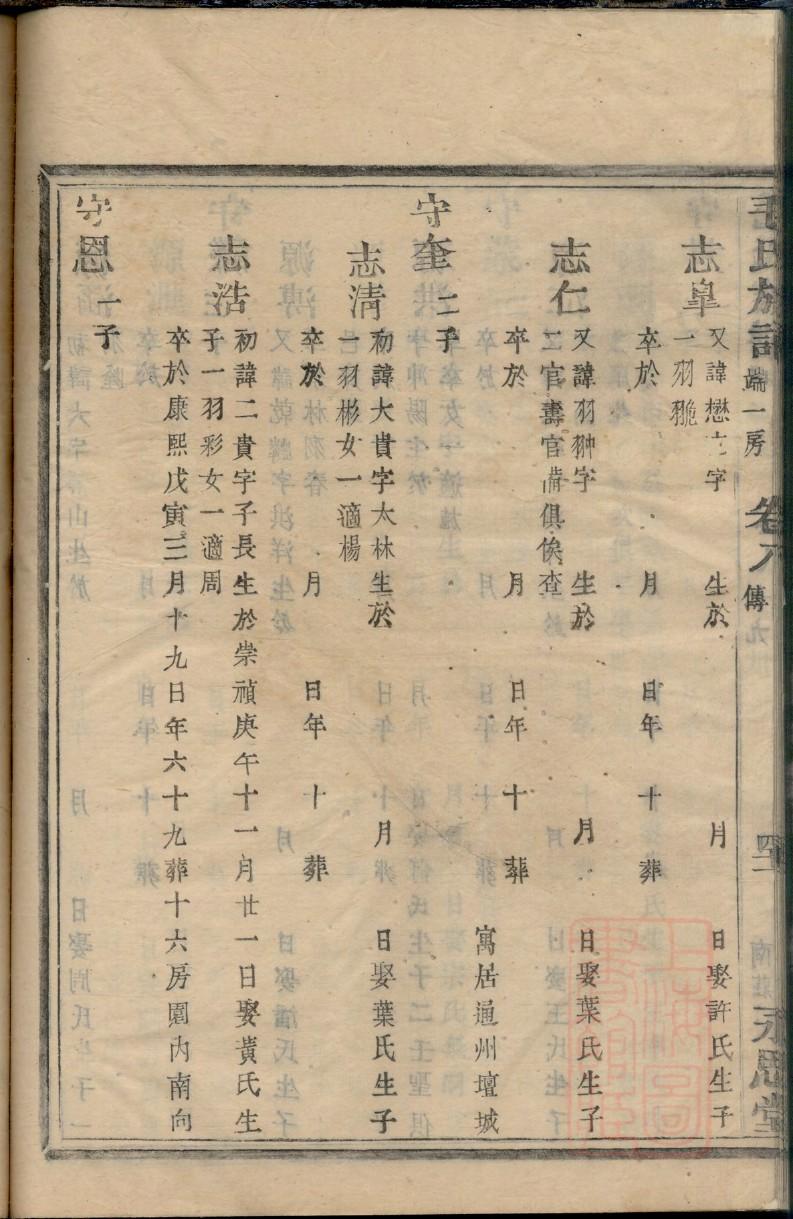 毛氏族譜 端一房 卷八 傳 四二 南莊 永思堂
志皐 又諱懋 字 生於 月 日娶許氏生子
一羽
卒於 月 日年 十 葬
志仁 又諱羽翀字 生於 月 日娶葉氏生子
二官壽官 俱俟查
卒於 月 日年 十 葬 寓居通州壇城
守奎 二子
志清 初諱大貴字太林生於 月 日娶葉氏生子
一羽彬女一適楊
卒於 月 日年 十 葬
志浩 初諱二貴字子長生於崇禎庚午十一月廿一日娶黃氏生
子一羽彩女一適周
卒於康熙戊寅三月十九日年六十九葬十六房園內南向
守恩 一子